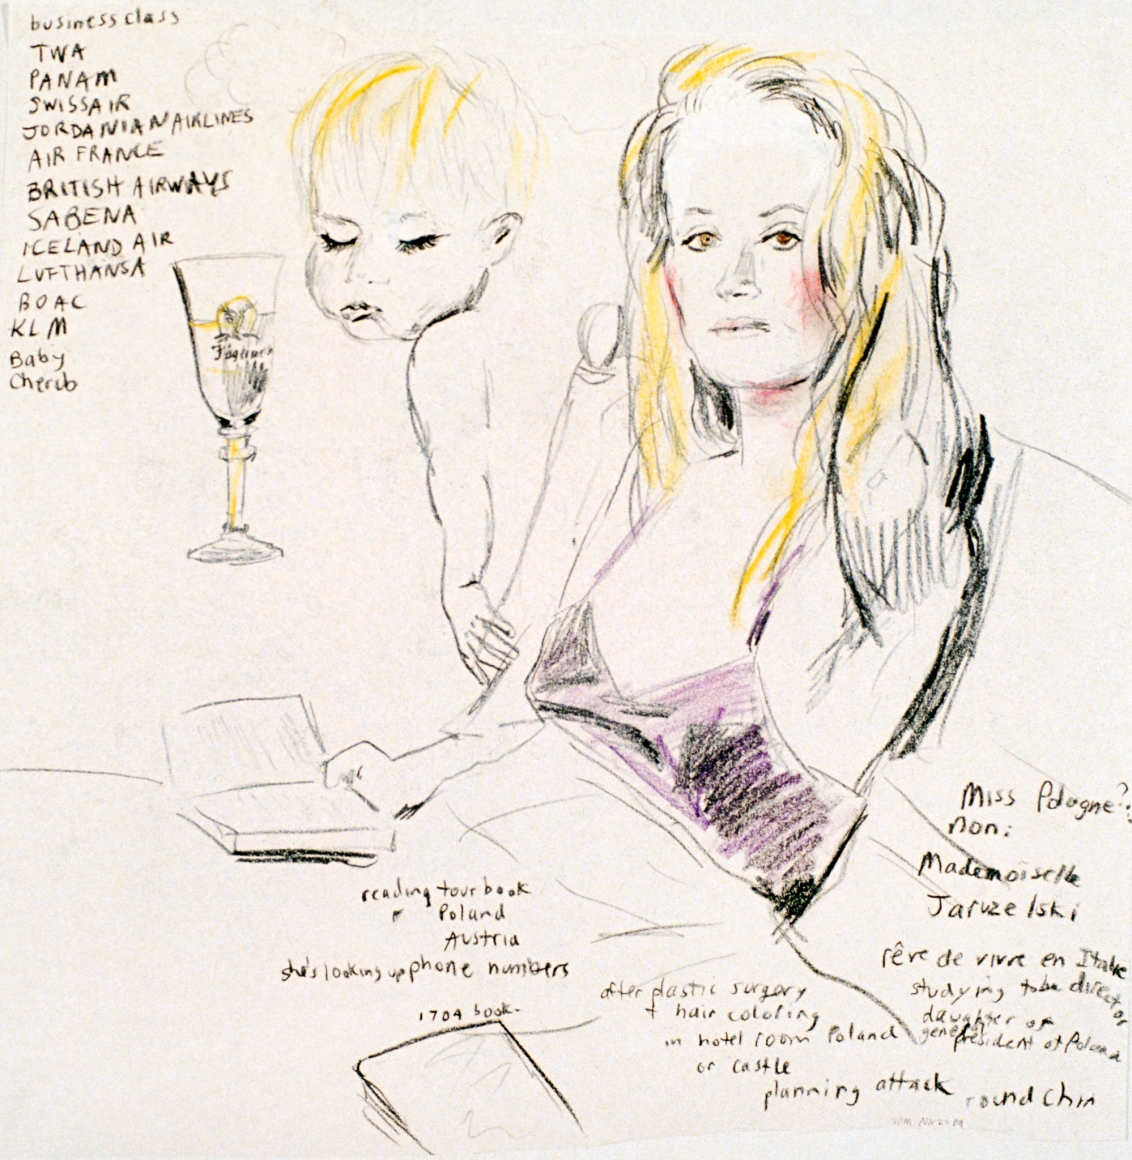 business class
TWA
PANAM
SWISSAIR
JORDANIAN AIRLINES
AIR FRANCE
BRITISH AIRWAYS
SABENA
ICELAND AIR
LUFTHANSA
BOAC
KLM
Baby
Cherub
reading tour book
Poland
Austria
she's looking up phone numbers
1704 book
Miss Pologne?
Non:
Mademoiselle
Jaruzelski
rêve de vivre en Italie
studying to be director
daughter of
general
president of Poland
round chin
after plastic surgery
+ hair coloring
in hotel room Poland
or castle
planning attack